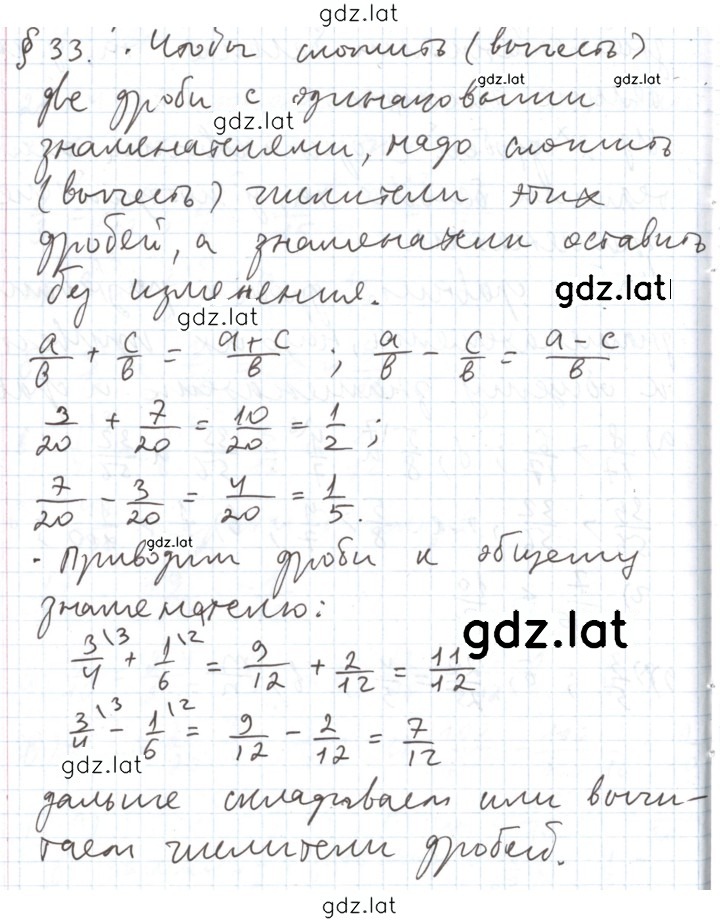 gdz.lat
§ 33. · Чтобы сложить (вычесть)
gdz.lat gdz.lat
две дроби с одинаковыми
gdz.lat
знаменателями, надо сложить
(вычесть) числители этих
дробей, а знаменатели оставить
без изменения.
gdz.lat
gdz.lat
a/b + c/b = a+c/b ; a/b - c/b = a-c/b
3/20 + 7/20 = 10/20 = 1/2 ;
7/20 - 3/20 = 4/20 = 1/5.
gdz.lat
· Приводим дроби к общему
знаменателю:
gdz.lat
3/4 \3 + 1/6 \2 = 9/12 + 2/12 = 11/12
3/4 \3 - 1/6 \2 = 9/12 - 2/12 = 7/12
gdz.lat
дальше складываем или вычи-
таем числители дробей.
gdz.lat